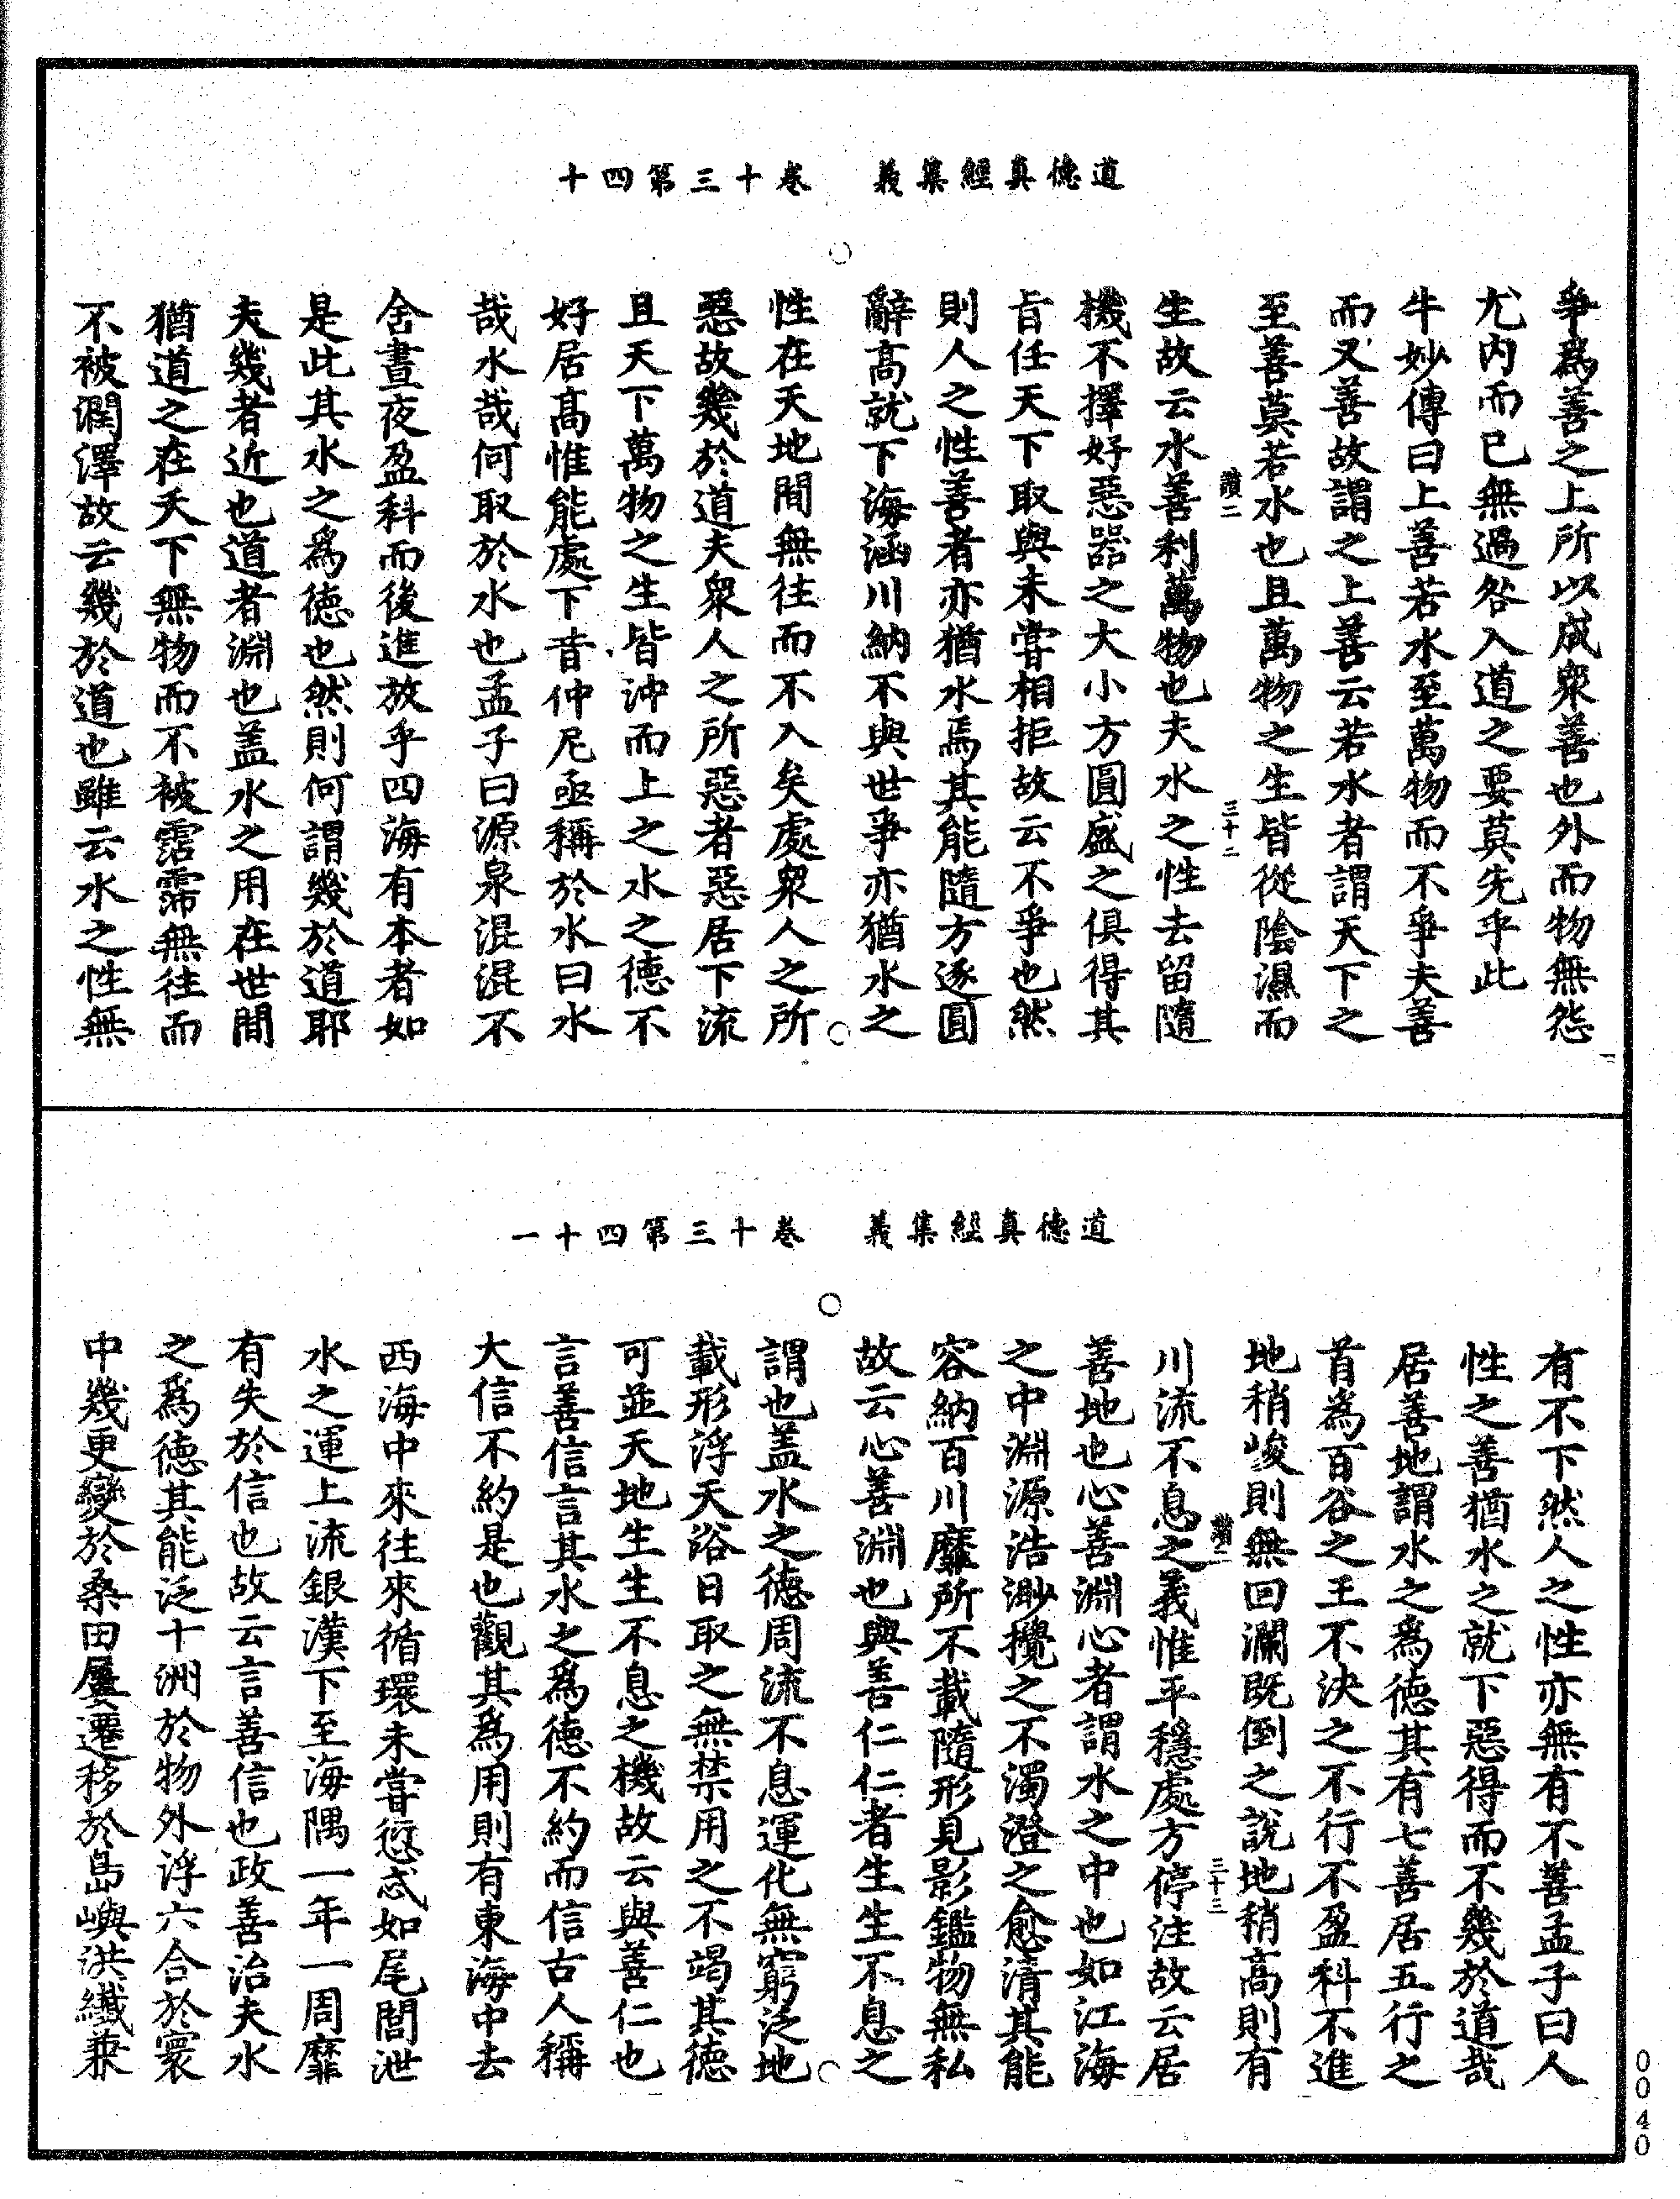 道德真經集義　卷十三第四十
爭為善之上所以成衆善也外而物無怨
尤內而已無過咎入道之要莫先乎此
牛妙傳曰上善若水至萬物而不爭夫善
而又善故謂之上善云若水者謂天下之
至善莫若水也且萬物之生皆從陰濕而
讚二　三十二
生故云水善利萬物也夫水之性去留隨
機不擇好惡器之大小方圓盛之俱得其
旨任天下取與未嘗相拒故云不爭也然
則人之性善者亦猶水焉其能隨方逐圓
辭高就下海涵川納不與世爭亦猶水之
性在天地間無往而不入矣處衆人之所
惡故幾於道夫衆人之所惡者惡居下流
且天下萬物之生皆沖而上之水之德不
好居高惟能處下昔仲尼亟稱於水曰水
哉水哉何取於水也孟子曰源泉混混不
舍晝夜盈科而後進放乎四海有本者如
是此其水之為德也然則何謂幾於道耶
夫幾者近也道者淵也蓋水之用在世間
猶道之在天下無物而不被霑霈無往而
不被潤澤故云幾於道也雖云水之性無
道德真經集義　卷十三第四十一
有不下然人之性亦無有不善孟子曰人
性之善猶水之就下惡得而不幾於道哉
居善地謂水之為德其有七善居五行之
首為百谷之王不決之不行不盈科不進
地稍峻則無回瀾既倒之說地稍高則有
讚二　三十三
川流不息之義惟平穩處方停注故云居
善地也心善淵心者謂水之中也如江海
之中淵源浩渺攪之不濁澄之愈清其能
容納百川靡所不載隨形見影鑑物無私
故云心善淵也與善仁仁者生生不息之
謂也蓋水之德周流不息運化無窮泛地
載形浮天浴日取之無禁用之不竭其德
可並天地生生不息之機故云與善仁也
言善信言其水之為德不約而信古人稱
大信不約是也觀其為用則有東海中去
西海中來往來循環未嘗愆忒如尾閭泄
水之運上流銀漢下至海隅一年一周靡
有失於信也故云言善信也政善治夫水
之為德其能泛十洲於物外浮六合於寰
中幾更變於桑田屢遷移於島嶼洪纖兼
0040